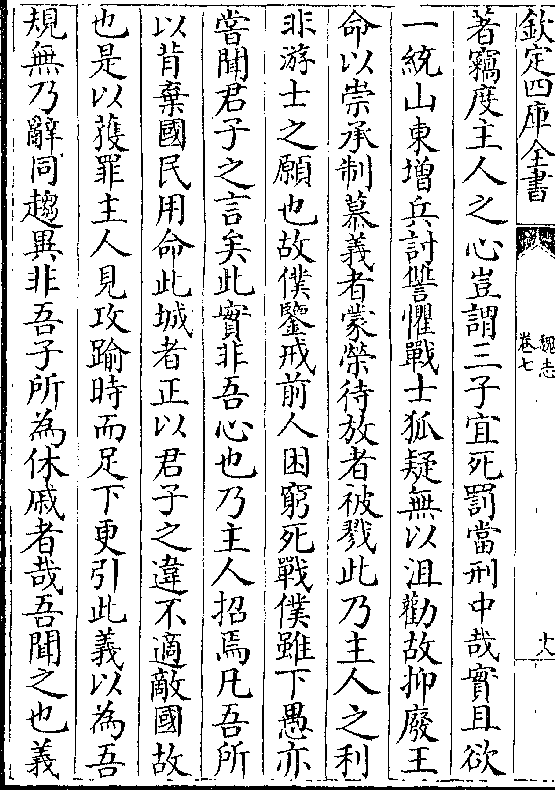 欽定四庫全書
魏志
卷七
十八
著竊度主人之心豈謂三子宜死罰當刑中哉實且欲
一統山東增兵討讐懼戰士狐疑無以沮勸故抑廢王
命以崇承制慕義者蒙榮待放者被戮此乃主人之利
非游士之願也故僕鑒戒前人困窮死戰僕雖下愚亦
嘗聞君子之言矣此實非吾心也乃主人招焉凡吾所
以背棄國民用命此城者正以君子之違不適敵國故
也是以獲罪主人見攻踰時而足下更引此義以為吾
規無乃辭同趨異非吾子所為休戚者哉吾聞之也義